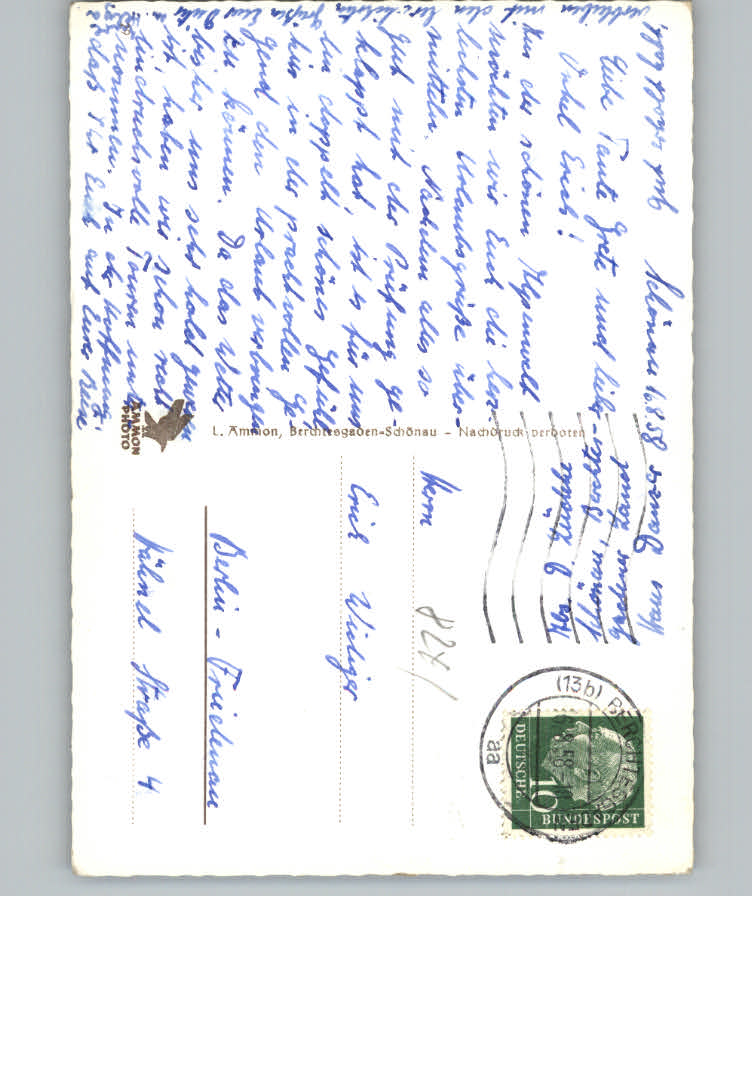 Schönau 16.8.58
Liebe Tante Grete und lieber
Onkel Erich!
Aus der schönen Alpenwelt
möchten wir Euch die herz-
lichsten Urlaubsgrüße über-
mitteln. Nachdem alles so
gut mit der Prüfung ge-
klappt hat, ist es für uns
ein doppelt schönes Gefühl
hier in der prachtvollen Ge-
gend den Urlaub verbringen
zu können. Da das Wetter
bisher uns sehr hold gewesen
ist, haben wir schon recht
eindrucksvolle Touren unter-
nommen. In der Hoffnung,
daß Ihr Euch auf Eurer
verbleiben mit den herzlichsten Grüßen
L. Ammon, Berchtesgaden-Schönau – Nachdruck verboten
AMMON
PHOTO
Herrn
Erich Wieliger
Berlin-Friedenau
Hähnel Straße 4
824
(13b) BERCHTESGADEN
aa
DEUTSCHE
BUNDESPOST
10